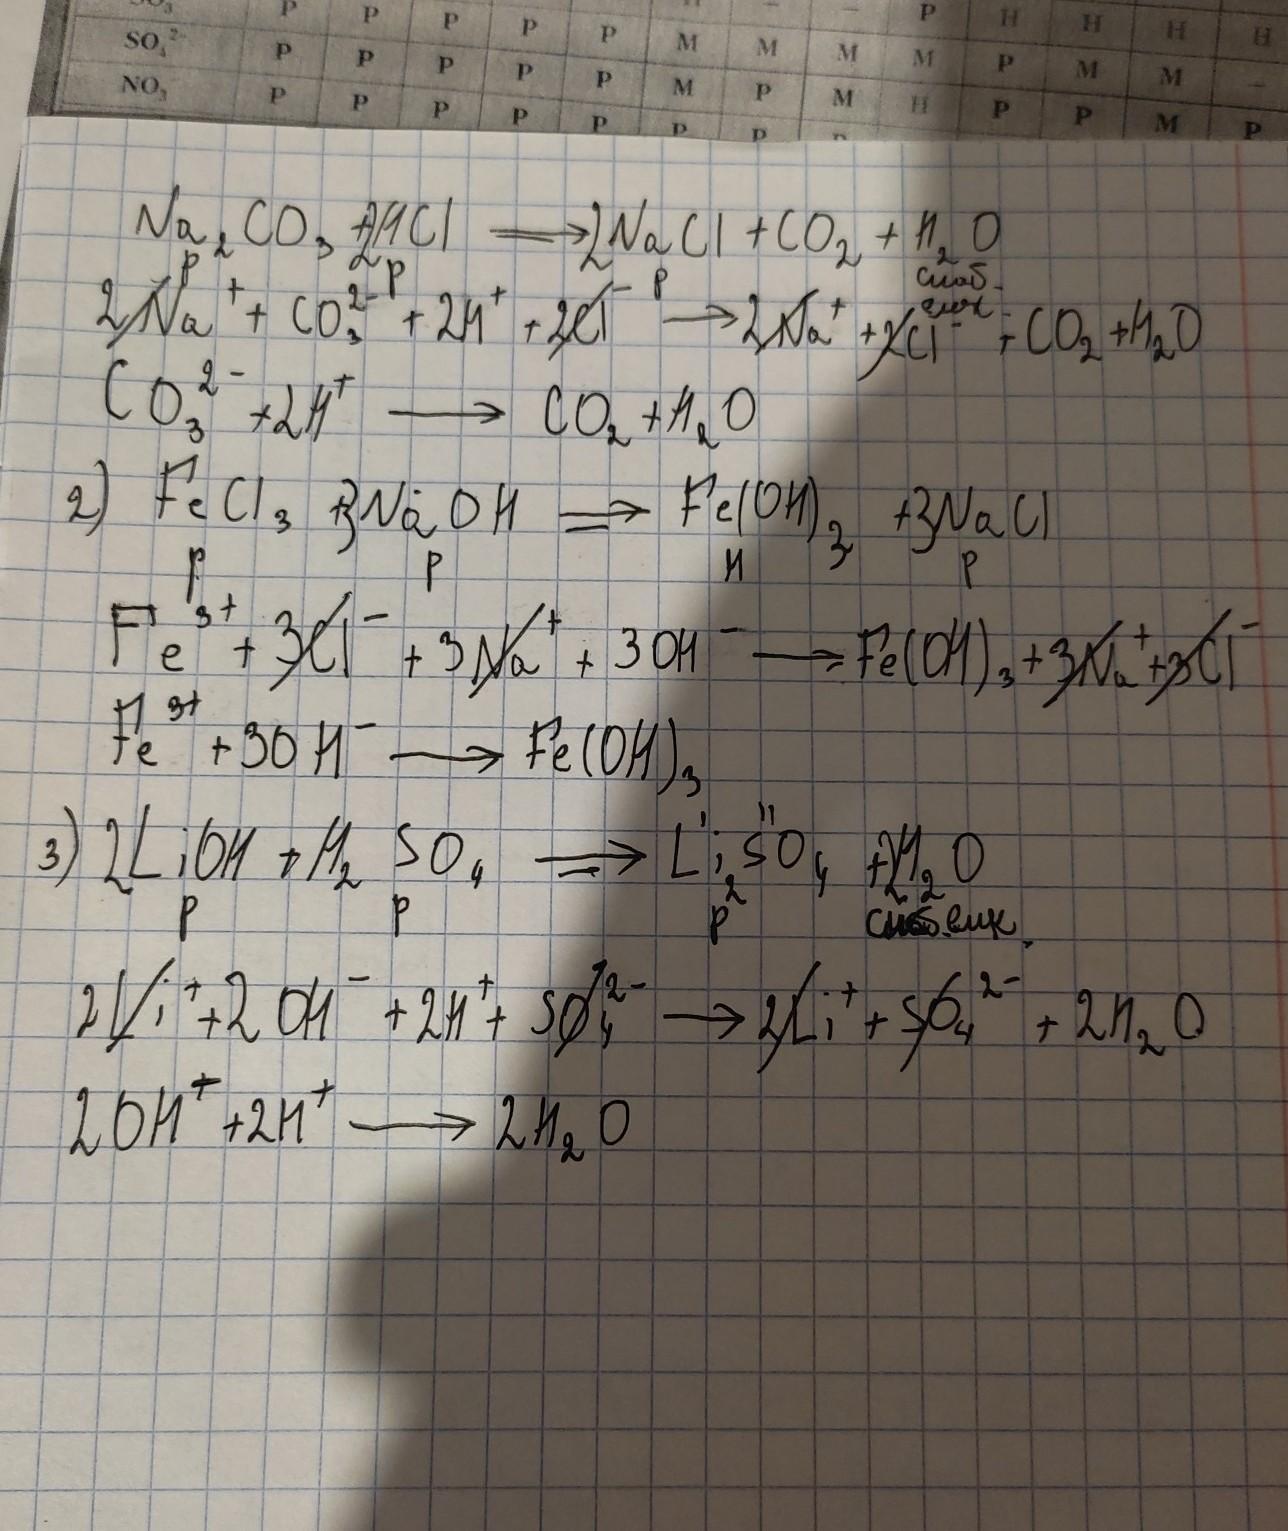 SO₃ Р Р Р Р Р Н – – Р Н Н Н Н
SO₄²⁻ Р Р Р Р Р М М М М Р М М –
NO₃ Р Р Р Р Р М Р М Н Р Р М Р
Na₂CO₃ + 2HCl ⟹ 2NaCl + CO₂ + H₂O
р р р слаб. элек.
2Na⁺ + CO₃²⁻ + 2H⁺ + 2Cl⁻ ⟶ 2Na⁺ + 2Cl⁻ + CO₂ + H₂O
CO₃²⁻ + 2H⁺ ⟶ CO₂ + H₂O
2) FeCl₃ + 3NaOH ⟹ Fe(OH)₃ + 3NaCl
р р н р
Fe³⁺ + 3Cl⁻ + 3Na⁺ + 3OH⁻ ⟶ Fe(OH)₃ + 3Na⁺ + 3Cl⁻
Fe³⁺ + 3OH⁻ ⟶ Fe(OH)₃
3) 2LiOH + H₂SO₄ ⟹ Li₂SO₄ + 2H₂O
р р р слаб. элек.
2Li⁺ + 2OH⁻ + 2H⁺ + SO₄²⁻ ⟶ 2Li⁺ + SO₄²⁻ + 2H₂O
2OH⁺ + 2H⁺ ⟶ 2H₂O